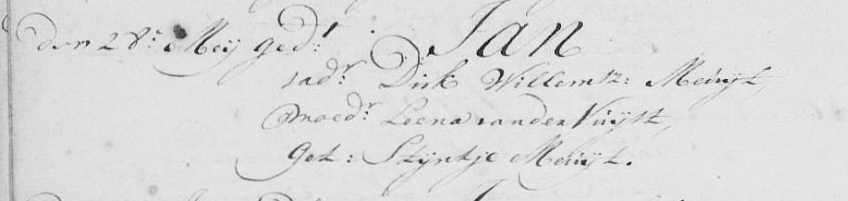 Den 28: Meij ged:t Jan
vad:r Dirk Willemsz: Meuijt,
moed:r Leena vander Vuijst,
Get: Stijntje Meuijt.